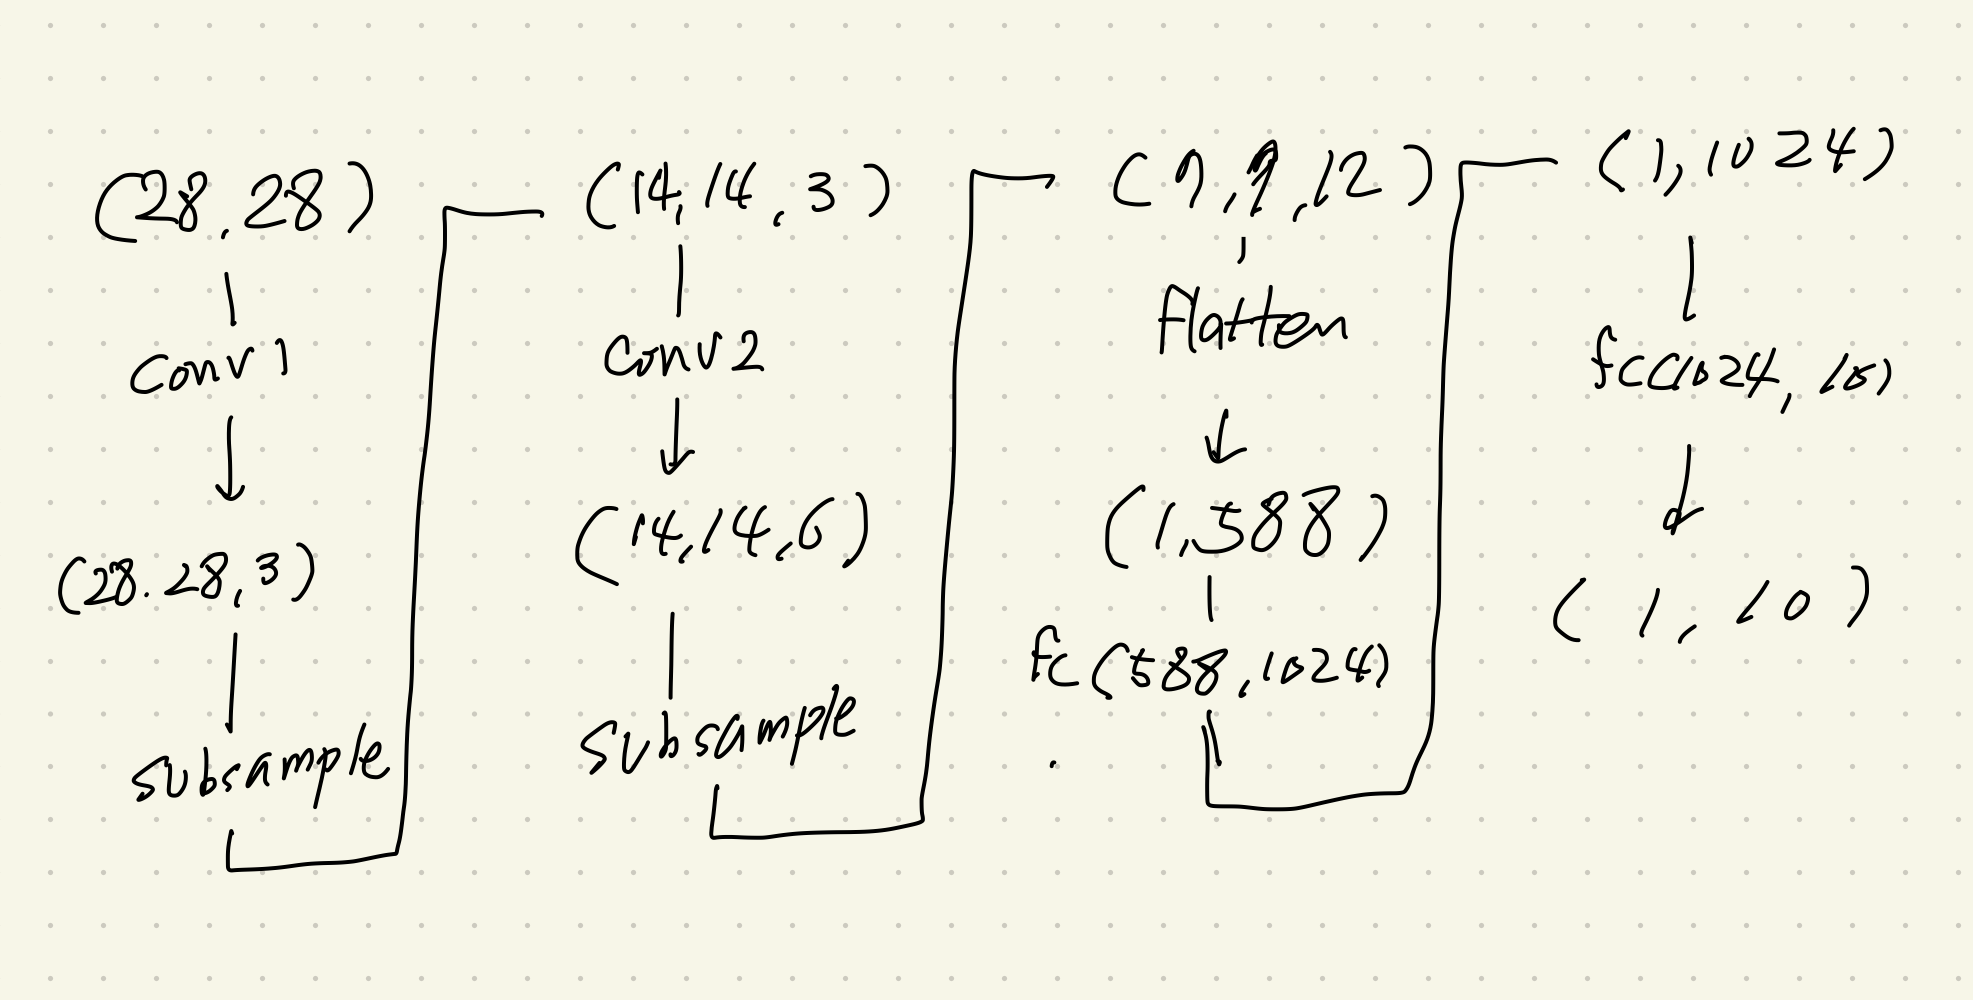 (28,28)
conv1
(28.28,3)
subsample
(14,14,3)
conv2
(14,14,6)
subsample
(7,7,12)
flatten
(1,588)
fc(588,1024)
(1,1024)
fc(1024,10)
(1,10)